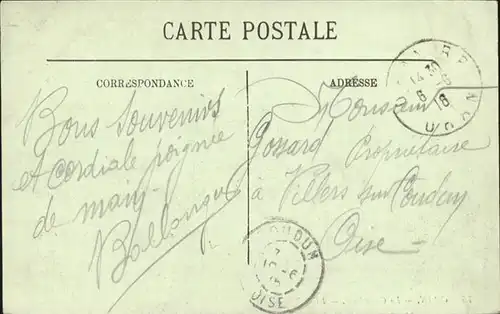 CARTE POSTALE
CORRESPONDANCE
Bons Souvenirs
et cordiale poignée
de main
ADRESSE
Monsieur
Gossard Propriétaire
à Villers sur Coudun
Oise
COUDUN
OISE